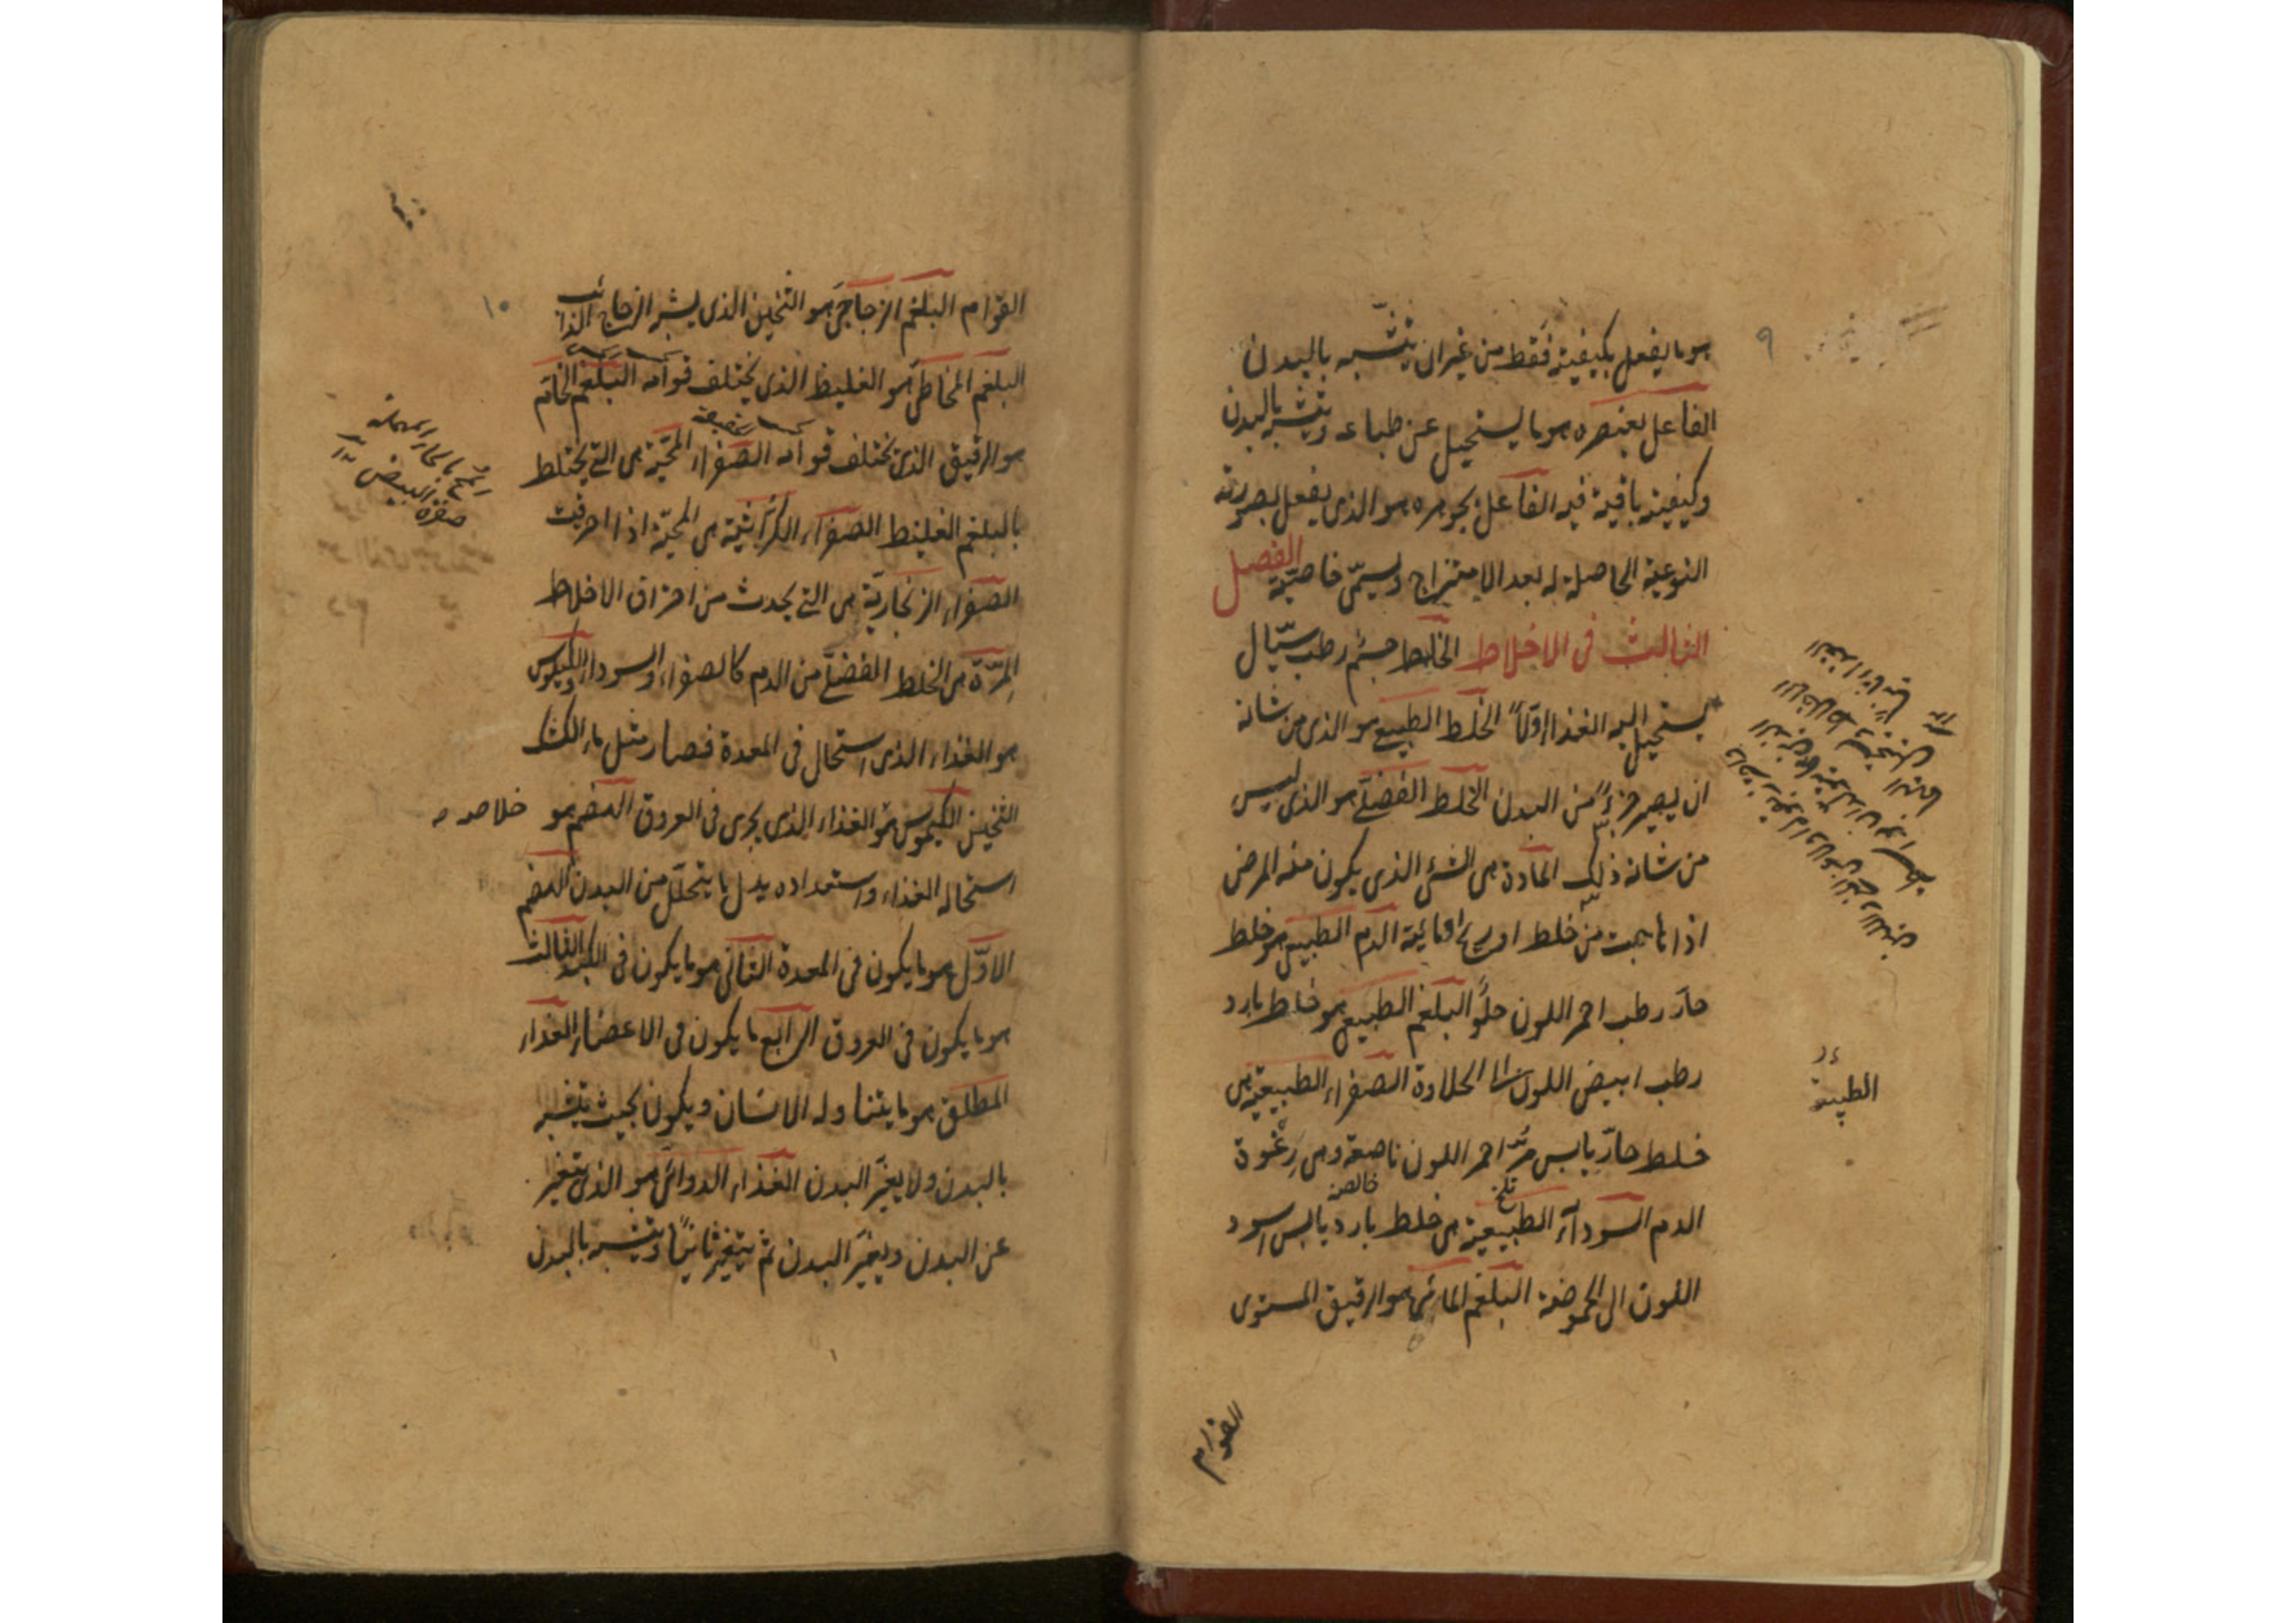 ٩
هو ما يفعل بكيفيته فقط من غير ان يتشبه بالبدن
الفاعل بعنصره هو ما يستحيل عن طباعه ويتشبه بالبدن
وكيفيته باقية فيه الفاعل بجوهره هو الذى يفعل بصورته
النوعية الحاصلة له بعد الامتزاج ويسمّى خاصيّة الفصل
الثالث فى الاخلاط الخلط جسم رطب سيّال
يستحيل اليه الغذاء اوّلاً الخلط الطبيعى هو الذى من شانه
ان يصير جزءً من البدن الخلط الفضلى هو الذى ليس
من شانه ذلك المادة هى الشئ الذى يكون منه المرض
اذا هاجت من خلط او ريح او مائية الدم الطبيعى هو خلط
حارّ رطب احمر اللون حلو البلغم الطبيعى هو خلط بارد
رطب ابيض اللون الى الحلاوة الصفراء الطبيعية هى
خلط حارّ يابس مرّ احمر اللون ناصعة وهى رغوة
تلخ خالصه
الدم السوداء الطبيعية هى خلط بارد يابس اسود
اللون الى الحموضة البلغم المائى هو الرقيق المستوى
القوام
الطبيعة
١٠
القوام البلغم الزجاجى هو الثخين الذى يشبه الزجاج الذائب
البلغم المخاطى هو الغليظ الذى يختلف قوامه البلغم الخام
هو الرقيق الذى يختلف قوامه الصفراء المحيّة هى التى يختلط
بالبلغم الغليظ الصفراء الكراثية هى المحيّة اذا احرقت
الصفراء الزنجاريّة هى التى يحدث من احراق الاخلاط
المِرّة هى الخلط الفضلى من الدم كالصفراء والسوداء الكيلوس
هو الغذاء الذى استحال فى المعدة فصار مثل ماء الكشك
الثخين الكيموس هو الغذاء الذى يجرى فى العروق الهضم هو
استحالة الغذاء واستعداده بدل ما يتحلّل من البدن الهضم
الاوّل هو ما يكون فى المعدة الثانى هو ما يكون فى الكبد الثالث
هو ما يكون فى العروق الرابع ما يكون فى الاعضاء الغذاء
المطلق هو ما يتناوله الانسان ويكون بحيث يتشبه
بالبدن ولا يغيّر البدن الغذاء الدوائى هو الذى يتغير
عن البدن ويغيّر البدن ثم يتغير ثانيًا ويتشبه بالبدن
المح بالحاء المهملة
صفرة البيض
خلاصه